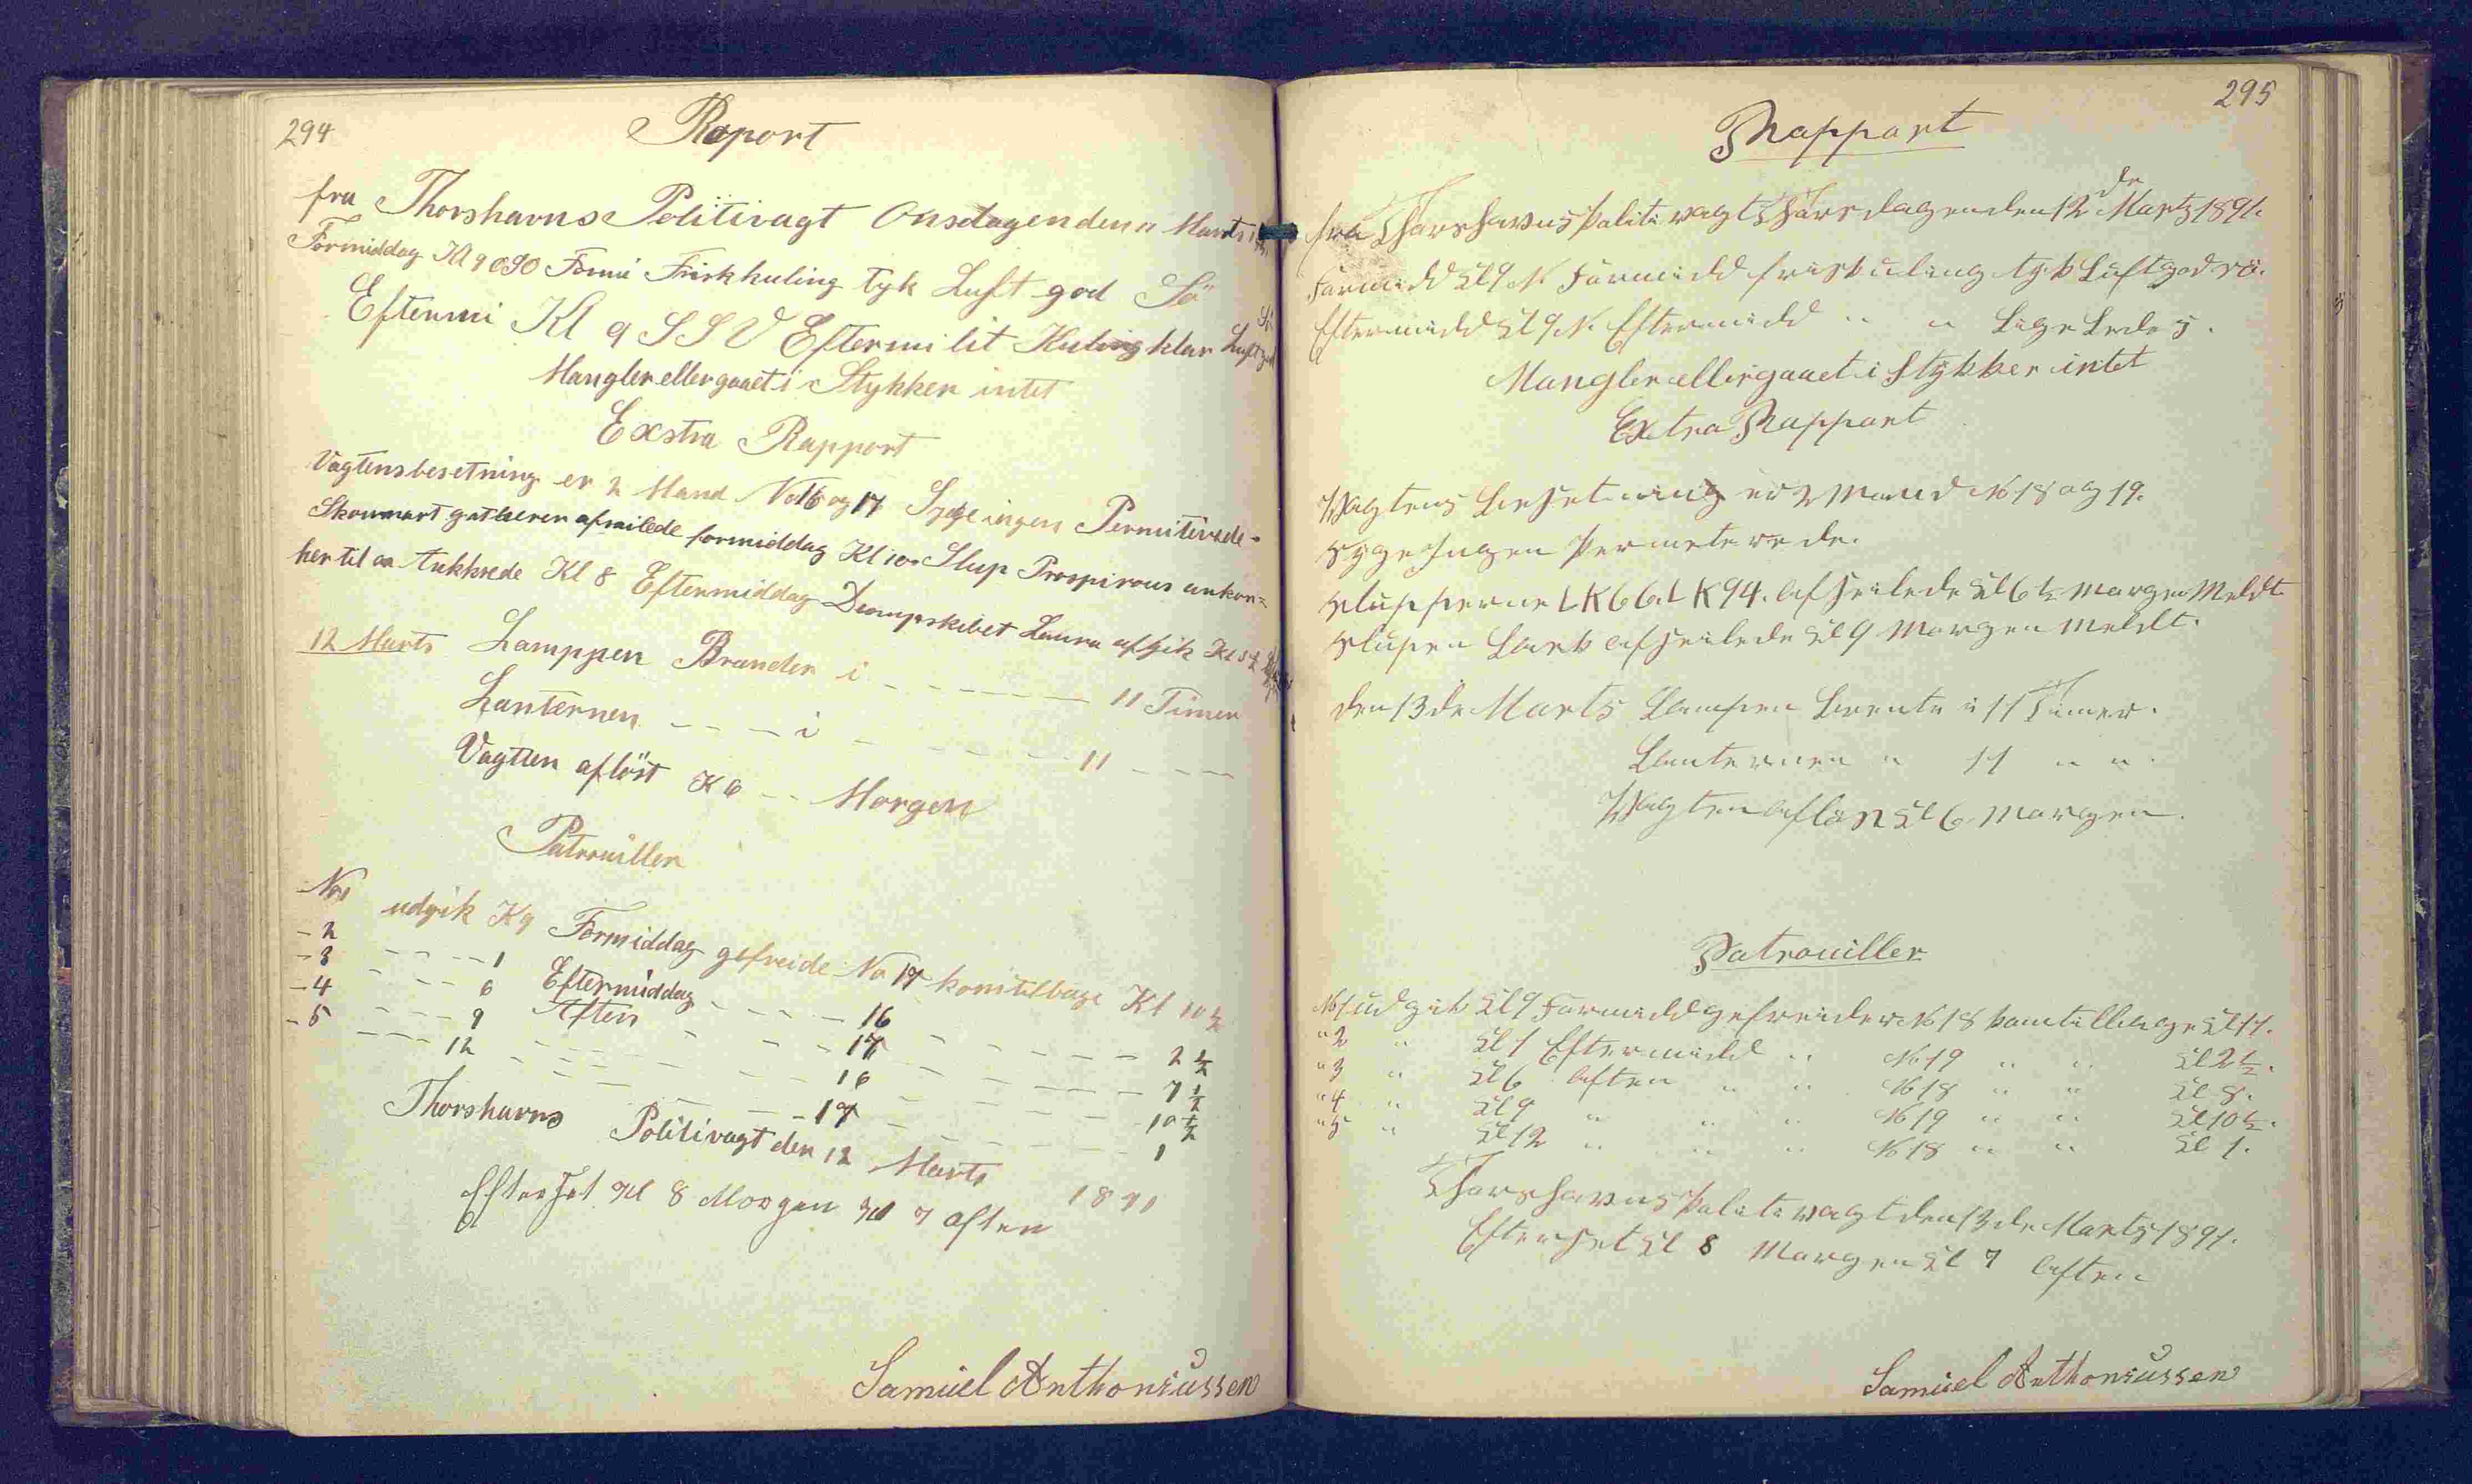 294
Raport
fra Thorshavns Politivagt Onsdagen den 11 Marts
Formiddag Kl 9 OSO Formi Friskkuling tyk Luft god Sö
Eftermi Kl 9 SSV Eftermi lit Kuling klar Luft god Sö
Mangler eller gaaet i Stykker intet
Exstra Rapport
Vagtens besetning er 2 Mand No 16 og 17 Syge ingen Permiterede
Skonnart afseilede formiddag Kl 10 Slup Prospirous ankom=
her til aa Ankkrede Kl 8 Eftermiddag Dampskibet Laura afgik Kl 5 1/2
12 Marts Lamppen Brander i - - - 11 Timer
Lanternen - - - i - - - 11 - - -
Vagtten aflöst K 6 - - Morgen
Patrouiller
No 1 udgik K 9 Formiddag gefreide No 17 kom tilbage Kl 10 1/2
- 2 - - - 1 Eftermiddag - - - 16 - - - 2 1/2
- 3 - - - 6 Aften - - - 17 - - - 7 1/2
- 4 - - - 9 - - - 16 - - - 10 1/2
- 5 - - - 12 - - - 17 - - - 1
Thorshavns Politivagt den 12 Marts 1891
Efterset Kl 8 Morgen Kl 7 aften
Samuel Anthoniussen
295
Rappart
fra Thorshavns Politivagt Thorsdagen den 12de Marts 1891.
Formidd Kl 9 N. Formidd friskuling tyk Luft god sö.
Eftermidd Kl 9 N. Eftermidd " " Lige Ledes.
Mangler eller gaaet i Stykker intet
Extra Rappart
Wagtens Besetning er 2 Mand No 18 og 19.
syge Ingen Permeterede.
slupperne LK 66. LK 94. afseilede Kl 6 1/2 Morgen Meldt.
slupen Lark afseilede Kl 9 Morgen Meldt.
den 13de Marts Lampen Brente i 11 Timer.
Lanternen " 11 " ".
Wagten aflöst Kl 6 Morgen.
Patrouiller
No 1 udgik Kl 9 Formidd gefreider No 18 kom tilbage Kl 11.
" 2 " Kl 1 Eftermidd " No 19 " " Kl 2 1/2.
" 3 " Kl 6 aften " " No 18 " " Kl 8.
" 4 " Kl 9 " " " No 19 " " Kl 10 1/2.
" 5 " Kl 12 " " " No 18 " " Kl 1.
Thorshavns Politivagt den 13de Marts 1891.
Efterset Kl 8 Morgen Kl 7 aften
Samuel Anthoniussen